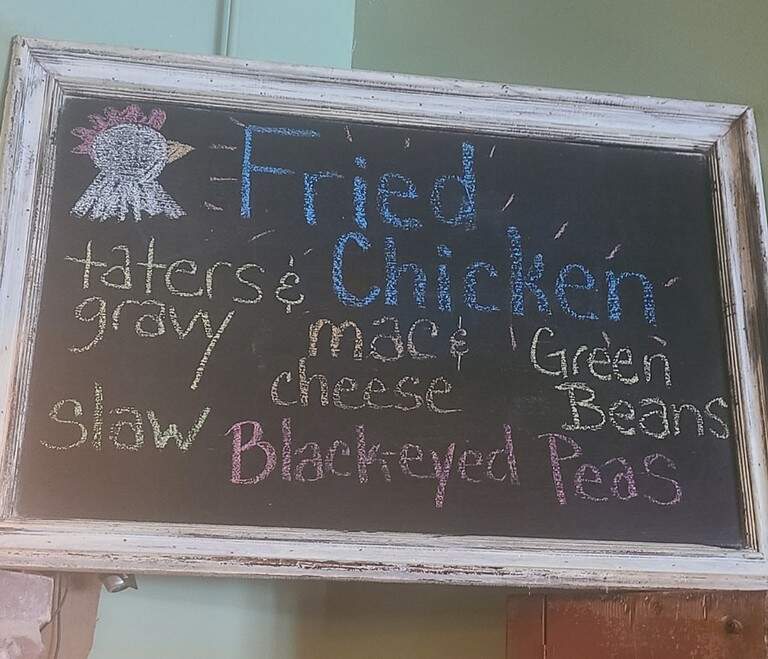 Fried
Chicken
taters &
gravy
mac &
cheese
Green
Beans
slaw
Black-eyed Peas